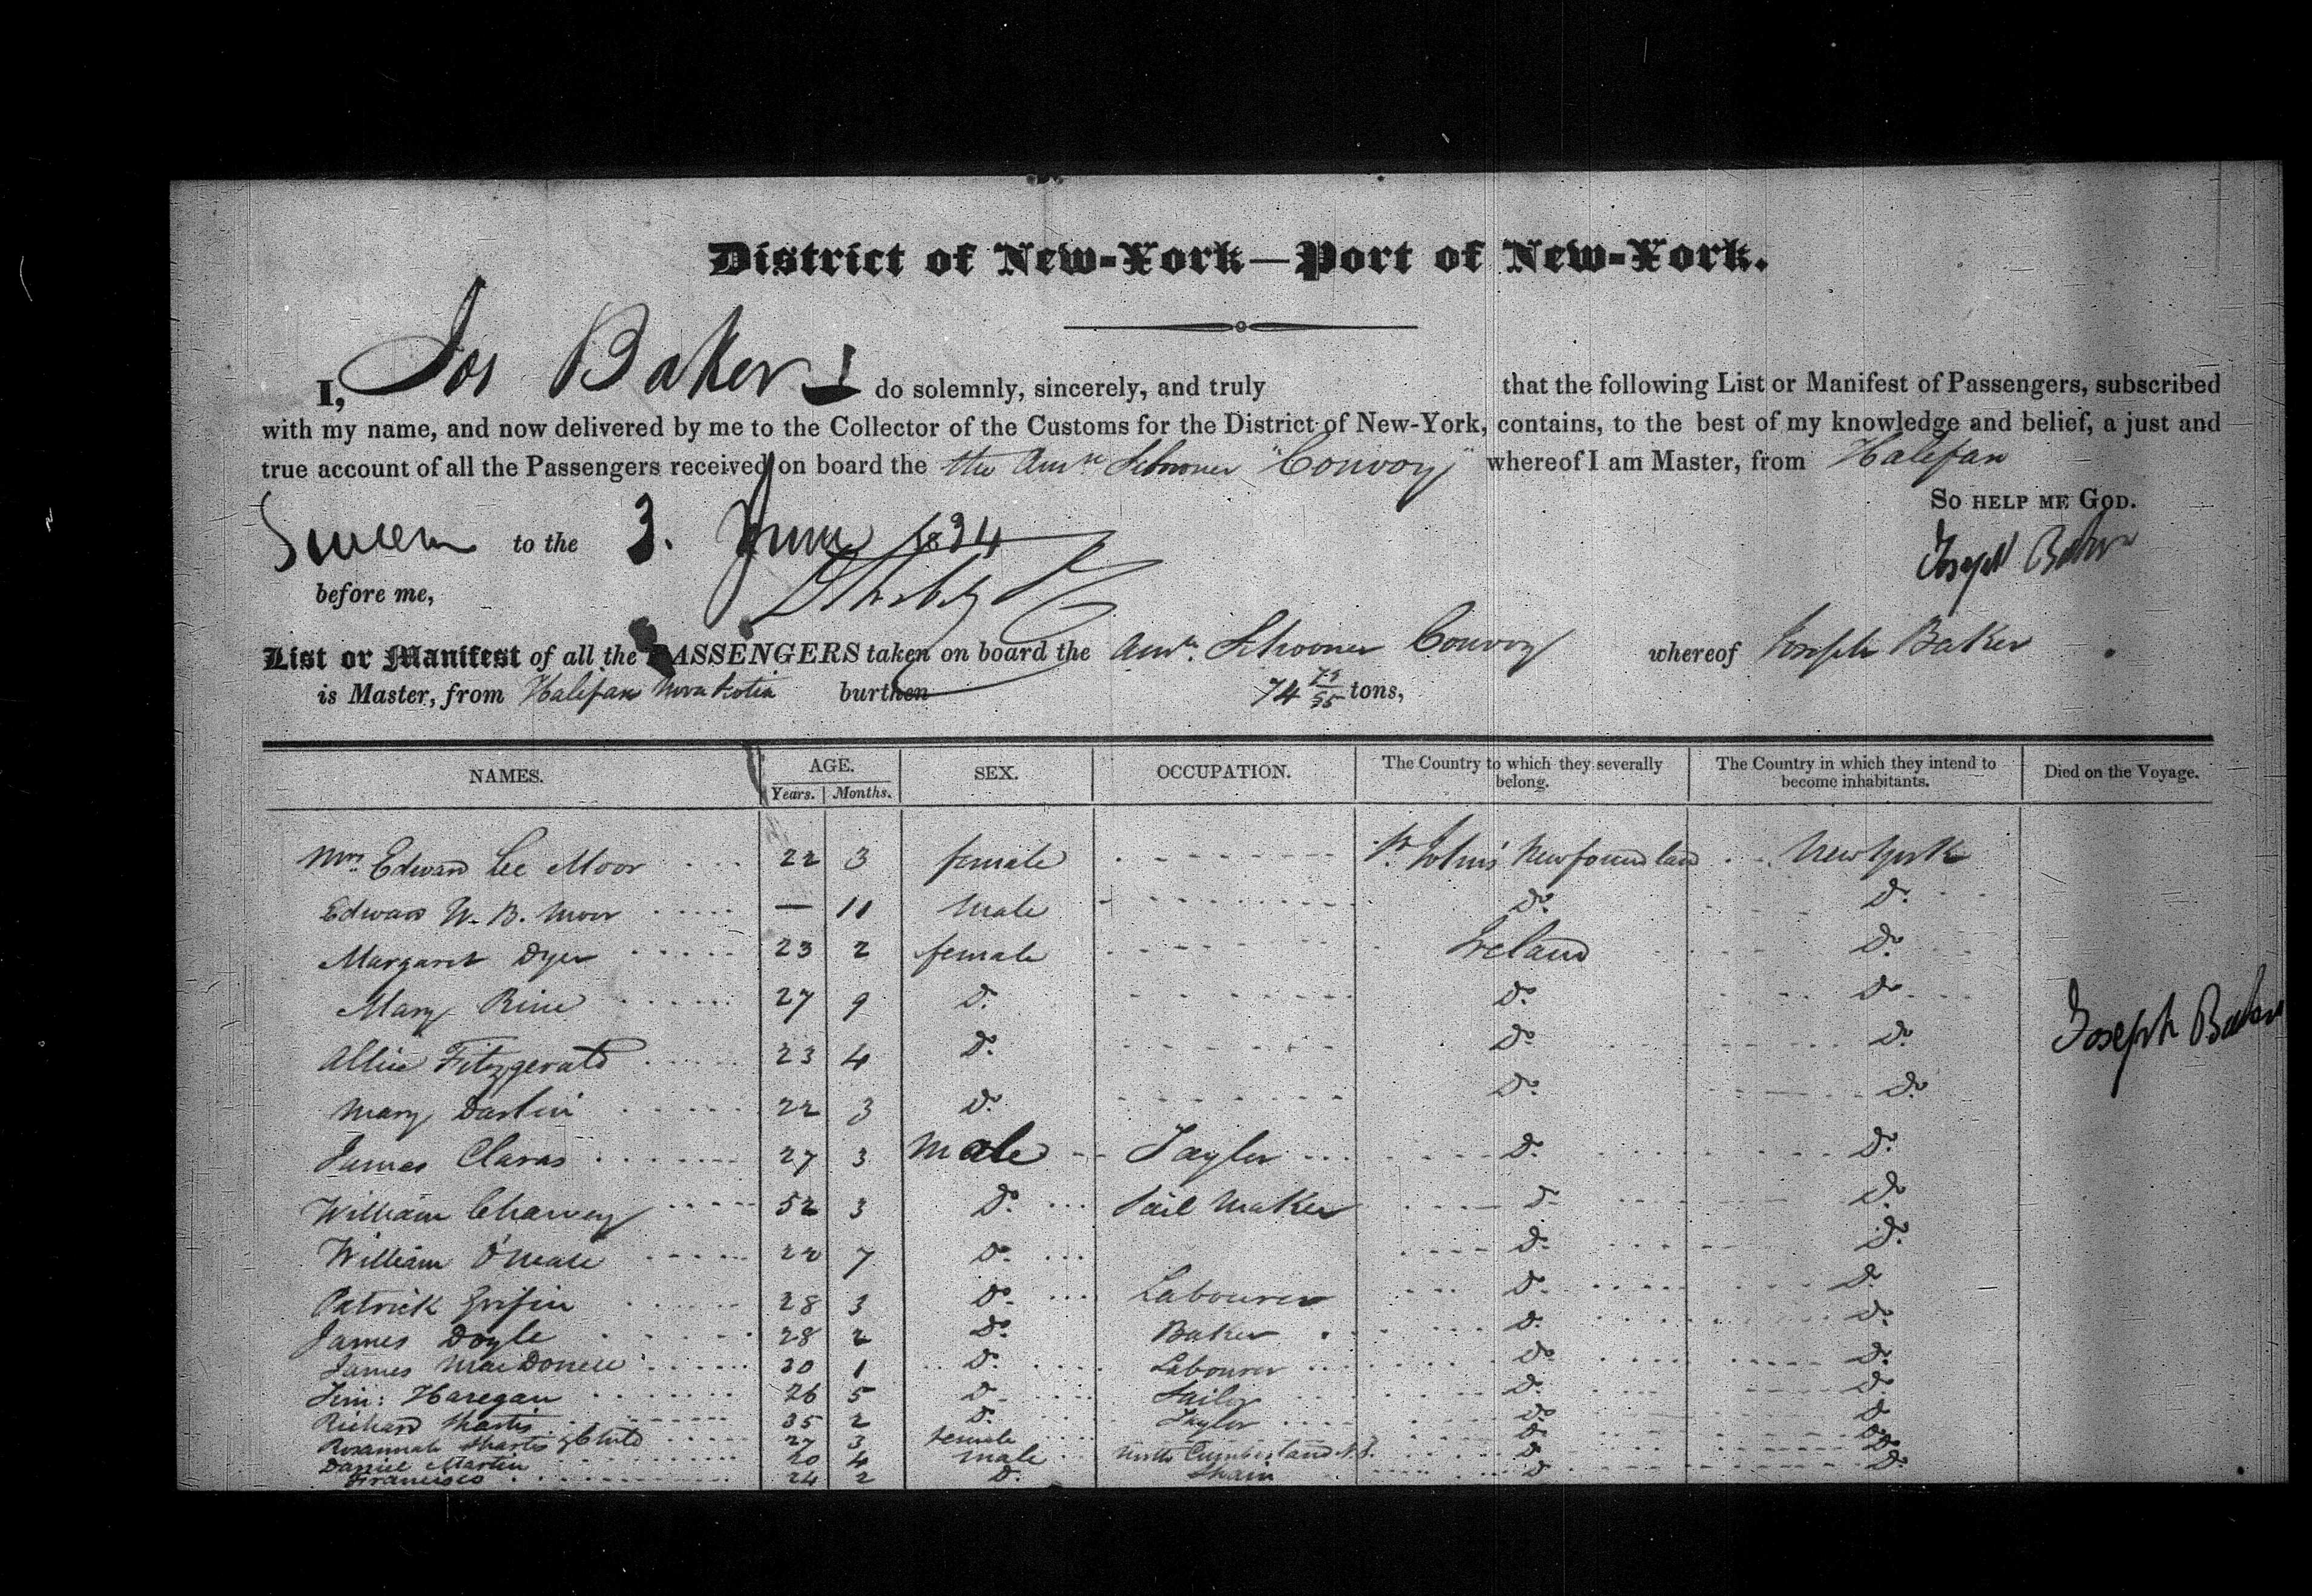 District of New-York—Port of New-York.
I, Jos Baker do solemnly, sincerely, and truly that the following List or Manifest of Passengers, subscribed
with my name, and now delivered by me to the Collector of the Customs for the District of New-York, contains, to the best of my knowledge and belief, a just and
true account of all the Passengers received on board the the Amn Schooner "Convoy" whereof I am Master, from Halifax
So help me God.
Sworn to the 3. June 1834
Joseph Baker
before me,
List or Manifest of all the PASSENGERS taken on board the Amn. Schooner Convoy whereof Joseph Baker
is Master, from Halifax Nova Scotia burthen 74 /95 tons,
NAMES. AGE. SEX. OCCUPATION. The Country to which they severally belong. The Country in which they intend to become inhabitants. Died on the Voyage.
Years. Months.
Mrs. Edward Lee Moor 22 3 female St. John's Newfoundland New York
Edward W. B. Moor — 11 Male Do. Do.
Margaret Dyer 23 2 female Ireland Do.
Mary Rine 27 9 Do. Do. Do.
Joseph Baker
Allice Fitzgerald 23 4 Do. Do. Do.
Mary Darlin 22 3 Do. Do. Do.
James Claras 27 3 Male Taylor Do. Do.
William Charvey 52 3 Do. Sail Maker Do. Do.
William O'Neale 22 7 Do. Do. Do.
Patrick Grifin 28 3 Do. Labourer Do. Do.
James Doyle 28 2 Do. Baker Do. Do.
James MacDonell 30 1 Do. Labourer Do. Do.
Jim: Haregan 26 5 Do. Sailor Do. Do.
Richard 35 2 Do. Taylor Do. Do.
Rosannah & Child 27 3 female Do. Do.
Daniel Martin 20 4 male North Cumberland N.S. Do. Do.
Francisco 24 2 Do. Spain Do. Do.